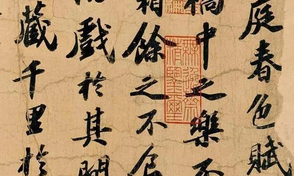 庭春色賦
橘中之樂不
霜餘之不食
戲於其間
藏千里於